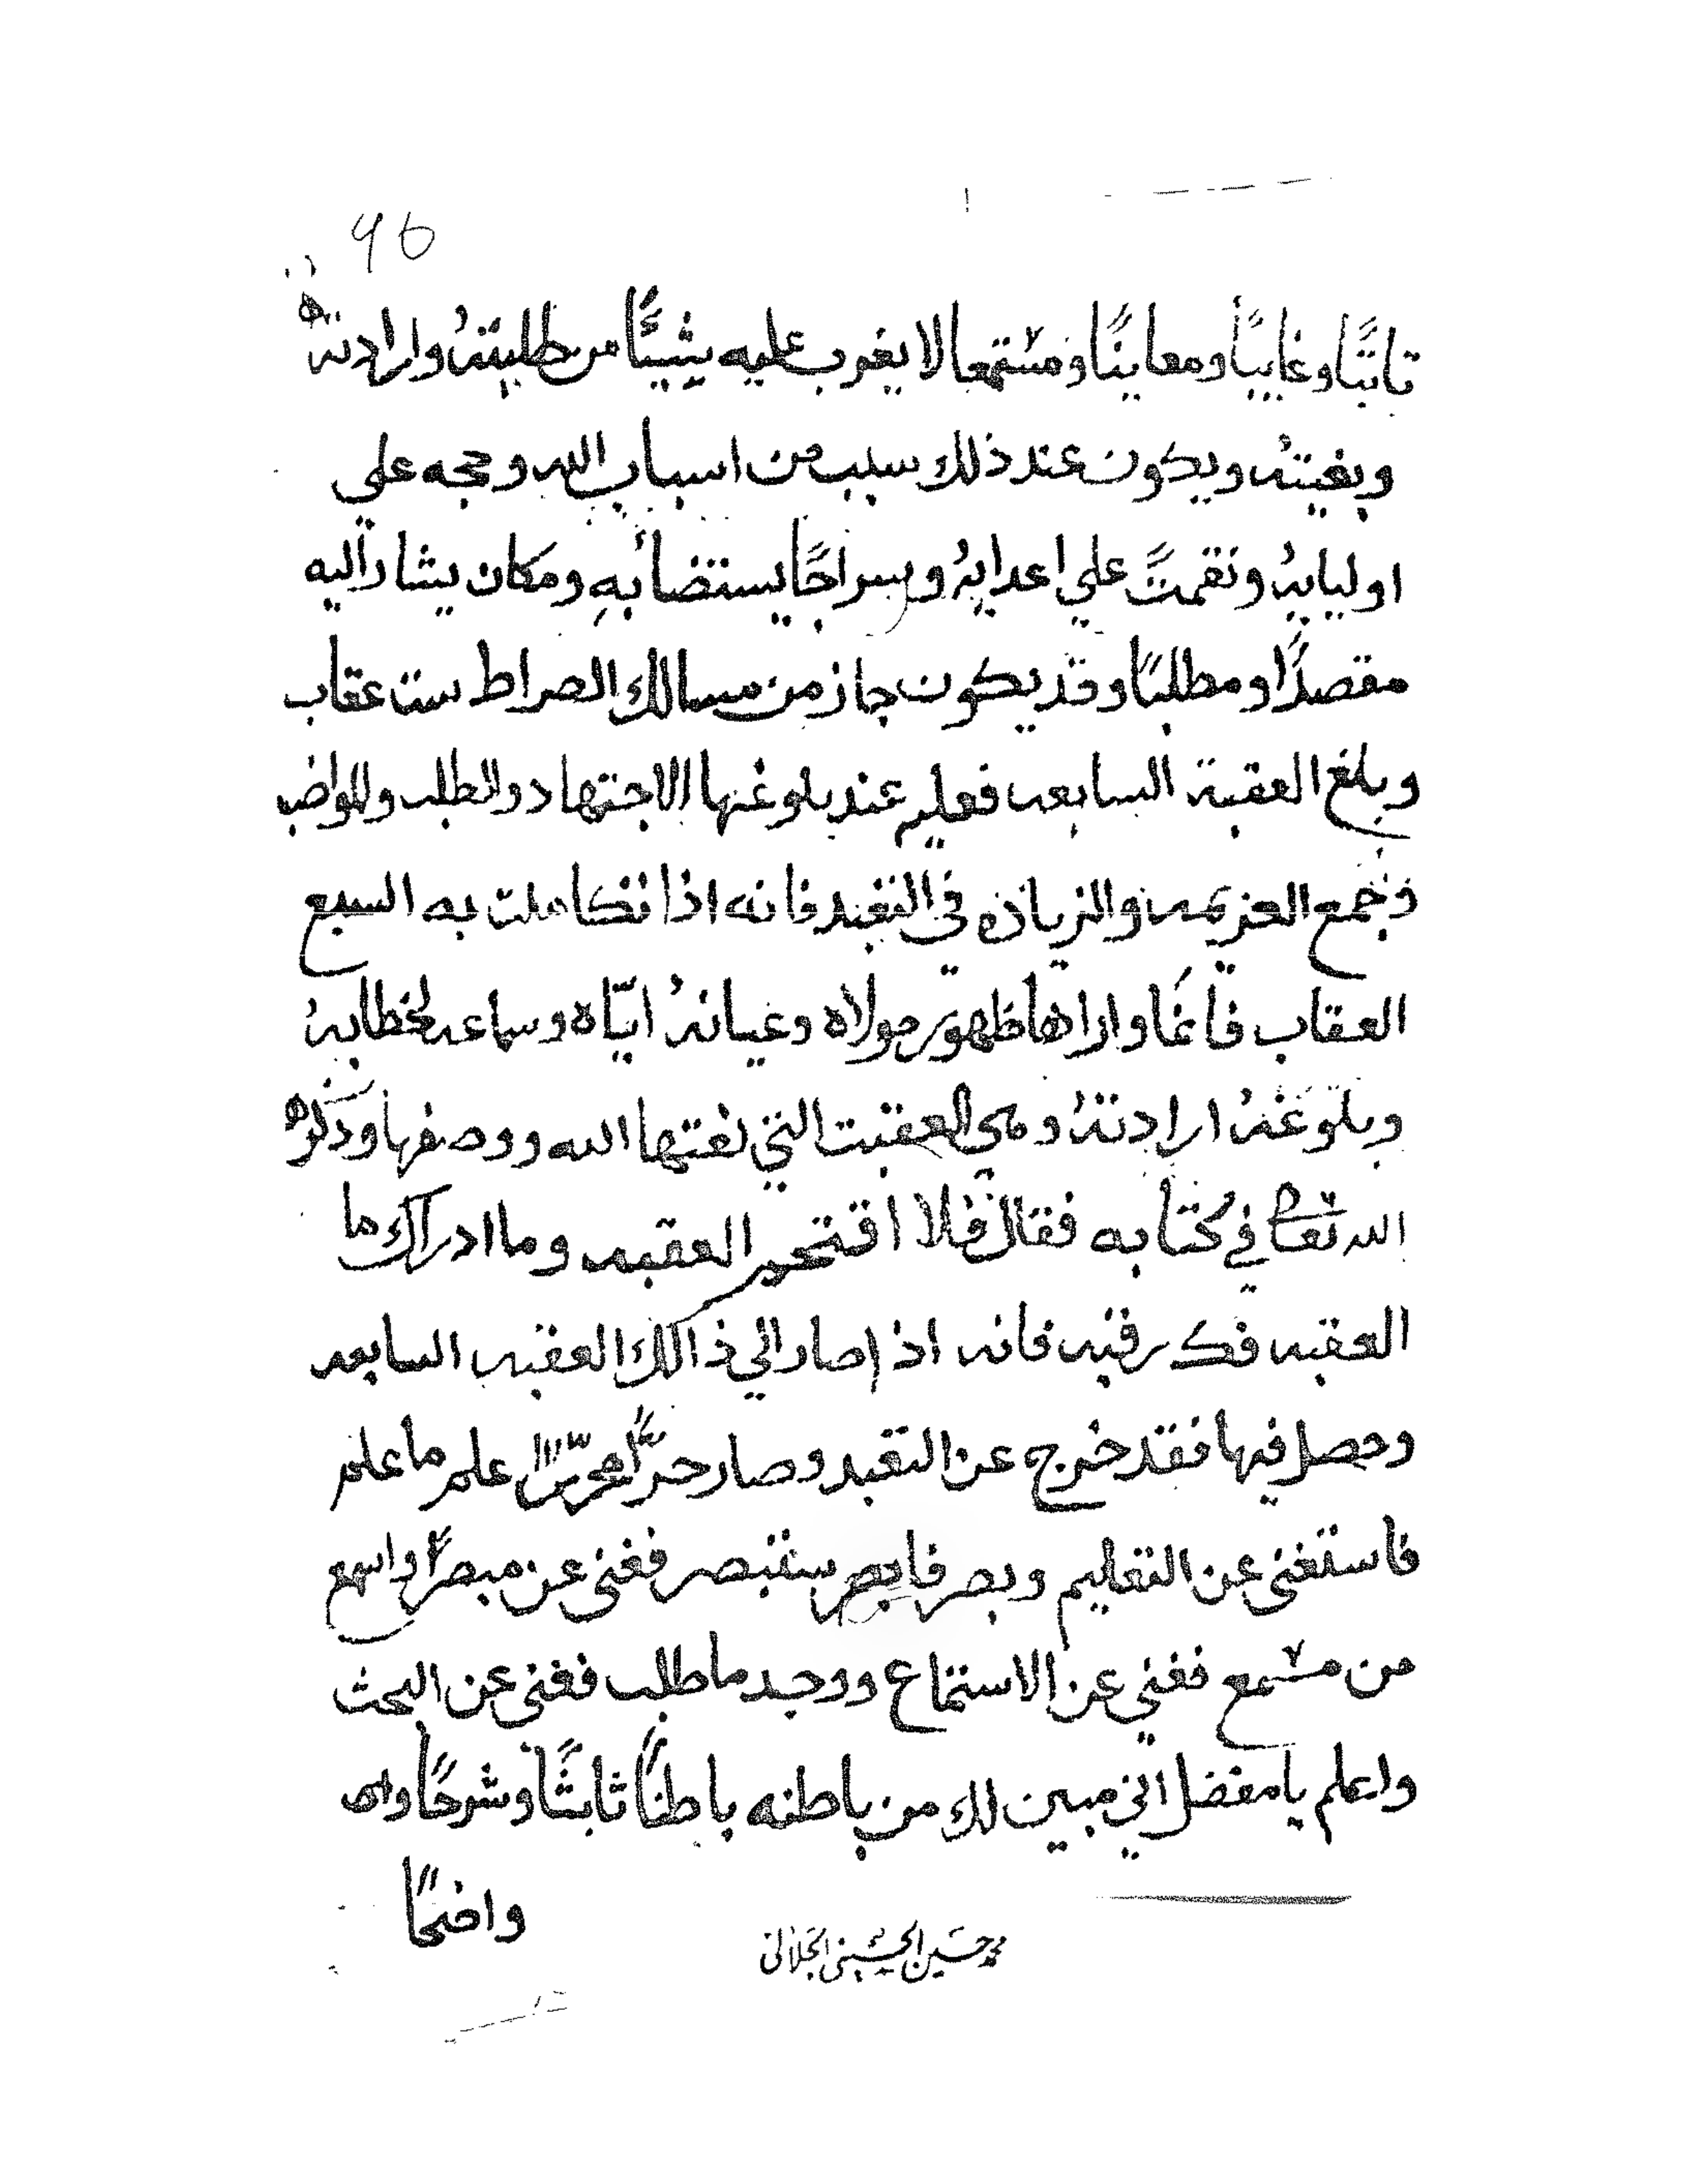 96
ثابتًا وغايبًا ومعاينًا ومستمعا لا يغرب عليه شيئًا من طلبيته وارادته
وبغيته ويكون عند ذلك سبب من اسباب الله وحجه علي
اوليايهُ ونقمتً علي اعدايهُ وسراجًا يستضأ بهِ ومكان يشار اليه
مقصدًا ومطلبًا وقد يكون جاز من مسالك الصراط ست عقاب
وبلغ العقبة السابعه فعليه عند بلوغها الاجتهاد والطلب والمواضب
وجمع العزيمه والزياده في التعبد فانه اذا تكاملت به السبع
العقاب فانما وراها ظهور مولاه وعيانهُ ايّاه وسماعه لخطابهُ
وبلوغهُ ارادتهُ وهي العقبت التي نعتها الله ووصفها وذكره
الله تعا في كتابه فقال فلا اقتحم العقبه وما ادراك ما
العقبه فك رقبه فانه اذا صار الي ذالك العقبه السابعه
وحصل فيها فقد خرج عن التعبد وصار حرًّا علم ما علم
فاستغني عن التعليم وبصر فابصر ستبصر فغني عن مبصرًا واسمع
من مسمع فغني عن الاستماع ووجد ما طلب فغني عن البحث
واعلم يا مفضل اني مبين لك من باطنه باطنًا ثابتًا وشرحًا
واضحًا
محمد حسين الحسيني الجلالي